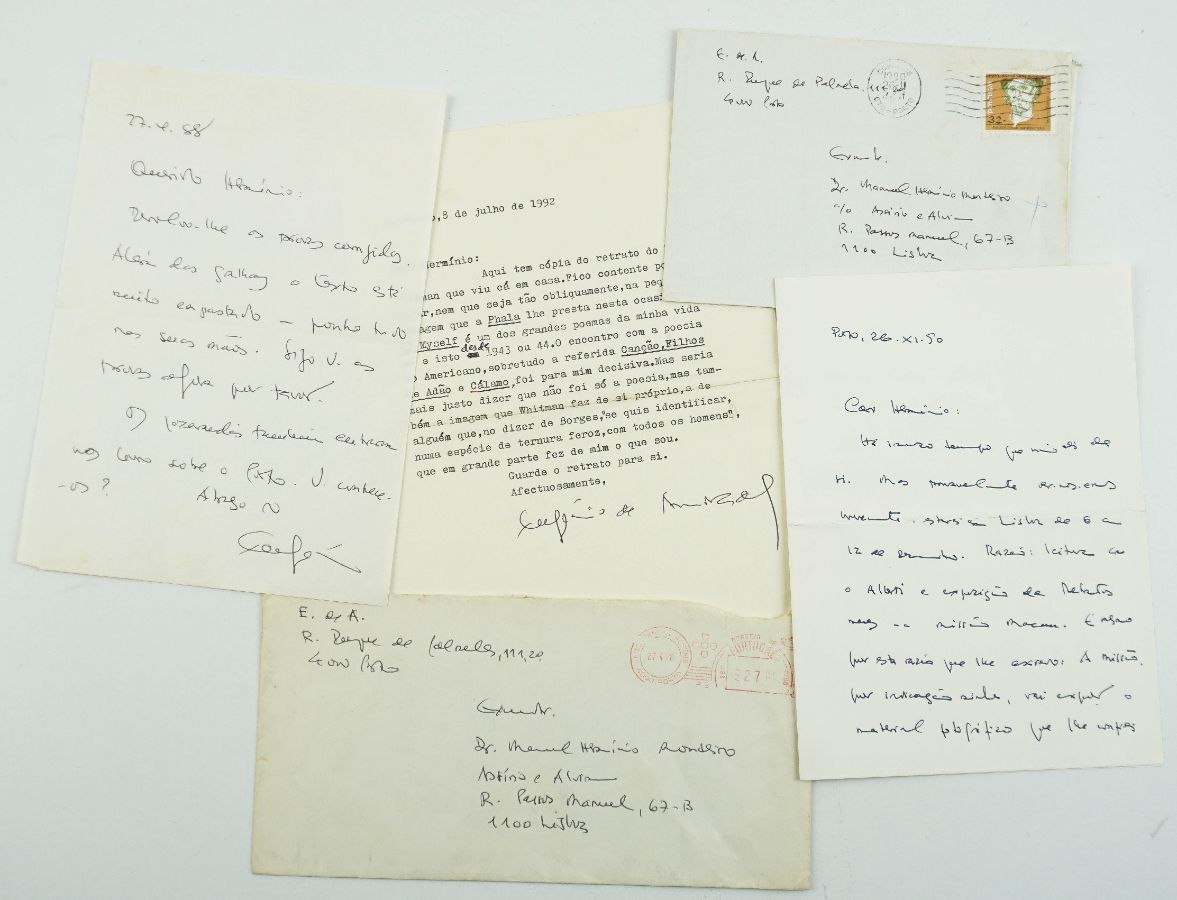 27.4.88
Querido Hermínio:
Devolvo-lhe as provas corrigidas.
Além das gralhas o texto está
muito empastado — ponho tudo
nas suas mãos. V. as
provas por favor.
Os também entraram
no livro sobre o Porto. V. conhece-
-os?
Abraço
Eugénio
o,8 de julho de 1992
ermínio:
Aqui tem cópia do retrato do
man que viu cá em casa.Fico contente po
r,nem que seja tão obliquamente,na peq
agem que a Phala lhe presta nesta ocasi
Myself é um dos grandes poemas da minha vida
e isto desde 1943 ou 44.O encontro com a poesia
o Americano,sobretudo a referida Canção,Filhos
e Adão e Cálamo,foi para mim decisiva.Mas seria
mais justo dizer que não foi só a poesia,mas tam-
bém a imagem que Whitman faz de si próprio,a de
alguém que,no dizer de Borges,"se quis identificar,
numa espécie de ternura feroz,com todos os homens",
que em grande parte fez de mim o que sou.
Guarde o retrato para si.
Afectuosamente,
Eugénio de Andrade
E. de A.
R. Duque de Palmela, 111, 2º
4000 Porto
32.
Dr. Manuel Hermínio Monteiro
c/o Assírio e Alvim
R. Passos Manuel, 67-B
1100 Lisboa
Porto, 26.XI.90
Caro Hermínio:
Há muito tempo que não sei de
si. Mas provavelmente ver-nos-emos
brevemente: estarei em Lisboa de 6 a
12 de Dezembro. Razão: leitura com
o Alberti e exposição de Retratos
meus na missão Macau. É mesmo
por esta razão que lhe escrevo: A missão,
por indicação minha, vai expor o
material fotográfico que lhe
E. de A.
R. Duque de Palmela, 111, 2º
4000 Porto
PORTUGAL
Dr. Manuel Hermínio Monteiro
Assírio e Alvim
R. Passos Manuel, 67-B
1100 Lisboa